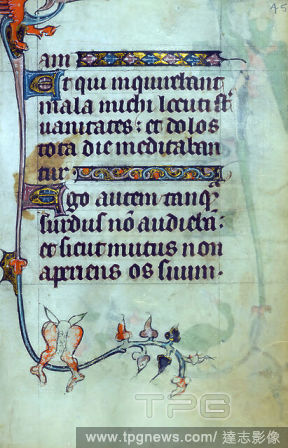 45
am
Et qui inquirebant
mala michi locuti st̄
vanitates: et dolos
tota die meditaban
tur
Ego autem tanqͣ
surdus nō audiebā:
et sicut mutus non
aperiens os suum.
TPG
www.tpgnews.com/達志影像